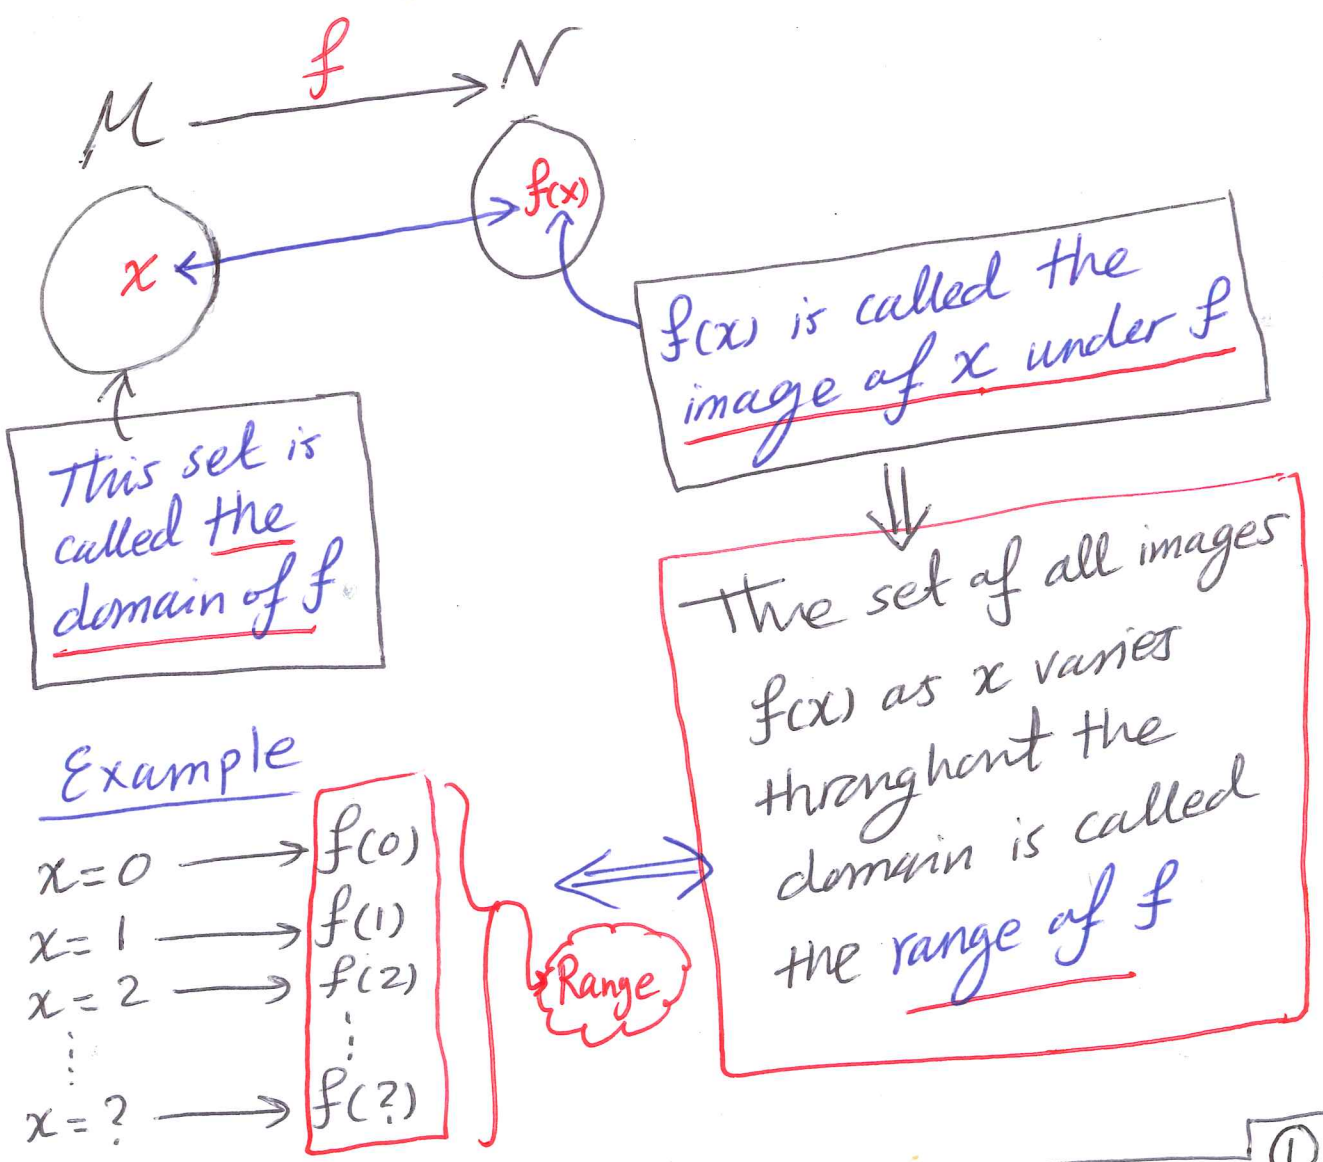 f
M → N
f(x)
x
f(x) is called the
image of x under f
This set is
called the
domain of f.
The set of all images
f(x) as x varies
throughout the
domain is called
the range of f
Example
x=0 → f(0)
x=1 → f(1)
x=2 → f(2)
Range
x=? → f(?)
1